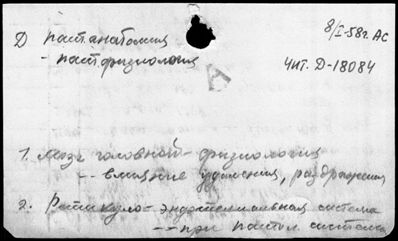 Д патанатомия
8/I-58г. АС
- патфизиология
Чит. Д-18084
А
1. Мозг головной - физиология
-- влияние удаления, раздражения
2. Ретикуло-эндотелиальная система
-- при патол